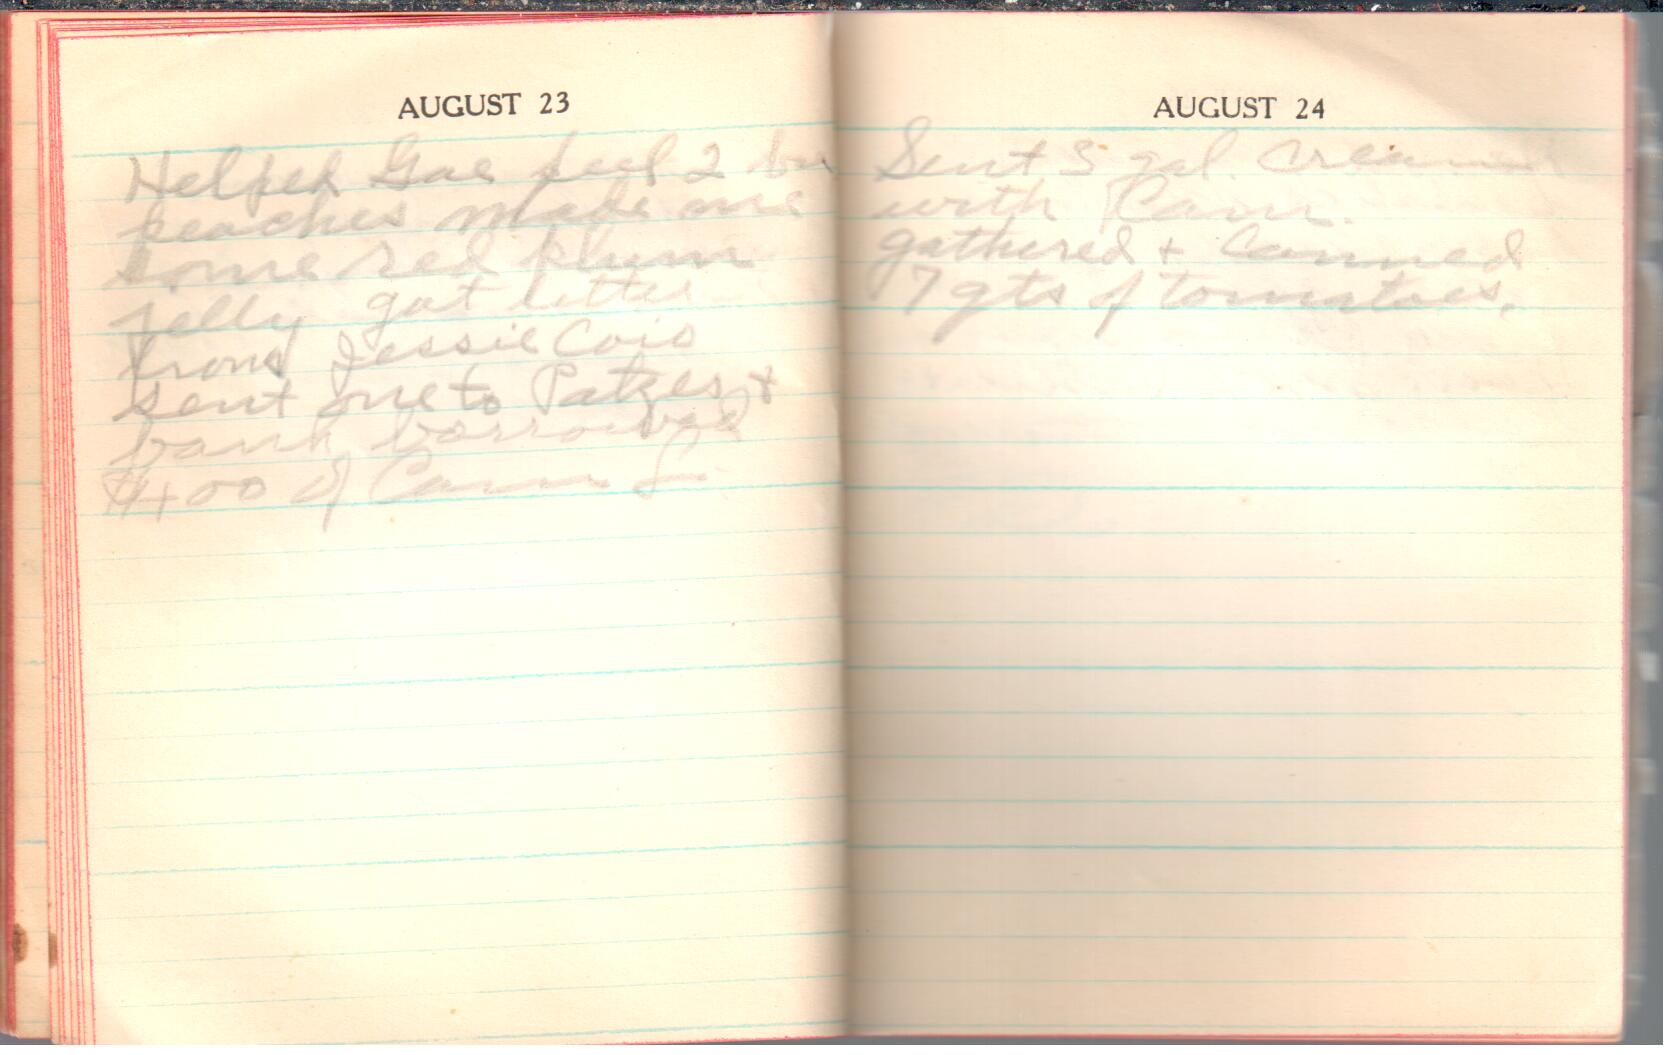 AUGUST 23
Helped Gae peel 2 bu
peaches made me
some red plum
jelly got letter
from Jessie Cois
sent one to Patzes &
bank borrowed
$400 of
AUGUST 24
Sent 5 gal. cream
with Cam.
gathered & canned
7 qts of tomatoes.